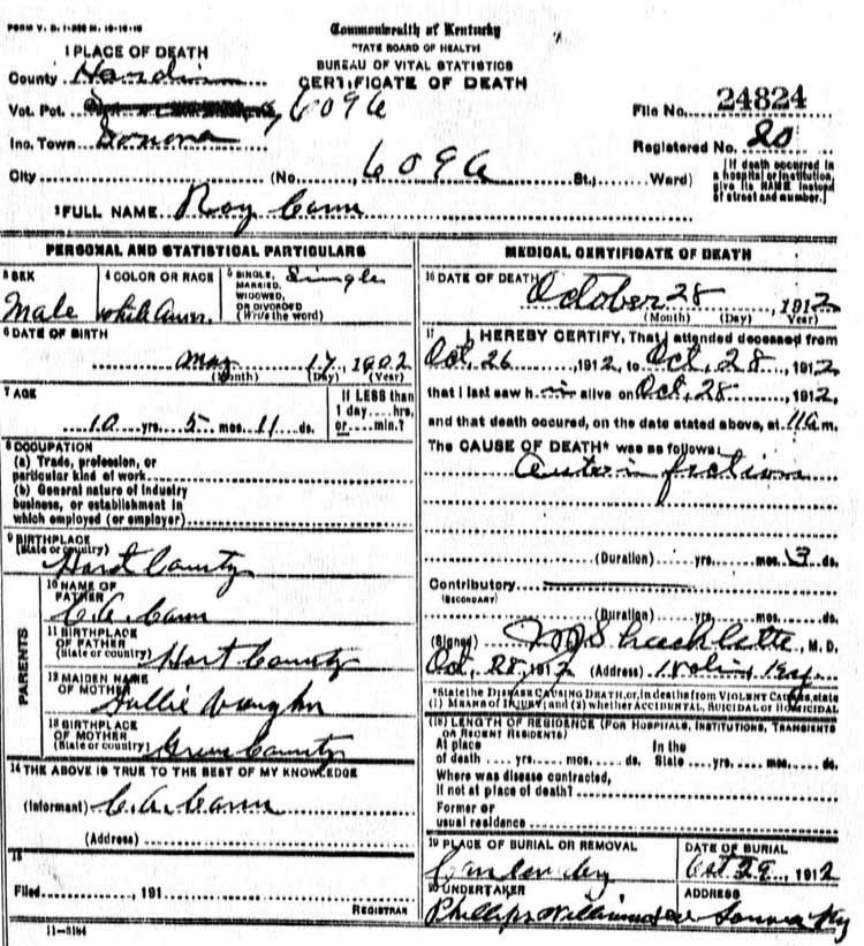 FORM V. S. 1-
Commonwealth of Kentucky
STATE BOARD OF HEALTH
BUREAU OF VITAL STATISTICS
CERTIFICATE OF DEATH
1 PLACE OF DEATH
County Hardin
Vot. Pct. 6096
Inc. Town Sonora
City (No. 6096 St.; Ward)
File No. 24824
Registered No. 20
[If death occurred in
a hospital or institution,
give its NAME instead
of street and number.]
2 FULL NAME Roy Cann
PERSONAL AND STATISTICAL PARTICULARS
3 SEX
Male
4 COLOR OR RACE
white Amer.
5 SINGLE,
MARRIED,
WIDOWED,
OR DIVORCED
(Write the word)
Single
6 DATE OF BIRTH
May 17, 1902
(Month) (Day) (Year)
7 AGE
10 yrs. 5 mos. 11 ds.
If LESS than
1 day....hrs.
or....min.?
8 OCCUPATION
(a) Trade, profession, or
particular kind of work
(b) General nature of industry
business, or establishment in
which employed (or employer)
9 BIRTHPLACE
(State or country)
Hart County
PARENTS
10 NAME OF
FATHER
C. A. Cann
11 BIRTHPLACE
OF FATHER
(State or country) Hart County
12 MAIDEN NAME
OF MOTHER
Sallie Vaughn
13 BIRTHPLACE
OF MOTHER
(State or country) Green County
14 THE ABOVE IS TRUE TO THE BEST OF MY KNOWLEDGE
(Informant) C. A. Cann
(Address)
15
Filed, 191
REGISTRAR
11-3184
MEDICAL CERTIFICATE OF DEATH
16 DATE OF DEATH
October 28, 1912
(Month) (Day) Year)
17 I HEREBY CERTIFY, That I attended deceased from
Oct, 26, 1912, to Oct, 28, 1912,
that I last saw him alive on Oct, 28, 1912,
and that death occured, on the date stated above, at 11 a m.
The CAUSE OF DEATH* was as follows:
(Duration) yrs. mos. 3 ds.
Contributory
(SECONDARY)
(Duration) yrs. mos. ds.
(Signed) Shacklette, M. D.
Oct, 28, 1912 (Address)
*State the DISEASE CAUSING DEATH, or, in deaths from VIOLENT CAUSES, state
(1) MEANS OF INJURY; and (2) whether ACCIDENTAL, SUICIDAL or HOMICIDAL
(18) LENGTH OF RESIDENCE (FOR HOSPITALS, INSTITUTIONS, TRANSIENTS
OR RECENT RESIDENTS)
At place
of death yrs. mos. ds.
In the
State yrs. mos. ds.
Where was disease contracted,
if not at place of death?
Former or
usual residence
19 PLACE OF BURIAL OR REMOVAL
DATE OF BURIAL
Oct 29, 1912
20 UNDERTAKER
ADDRESS
Sonora Ky